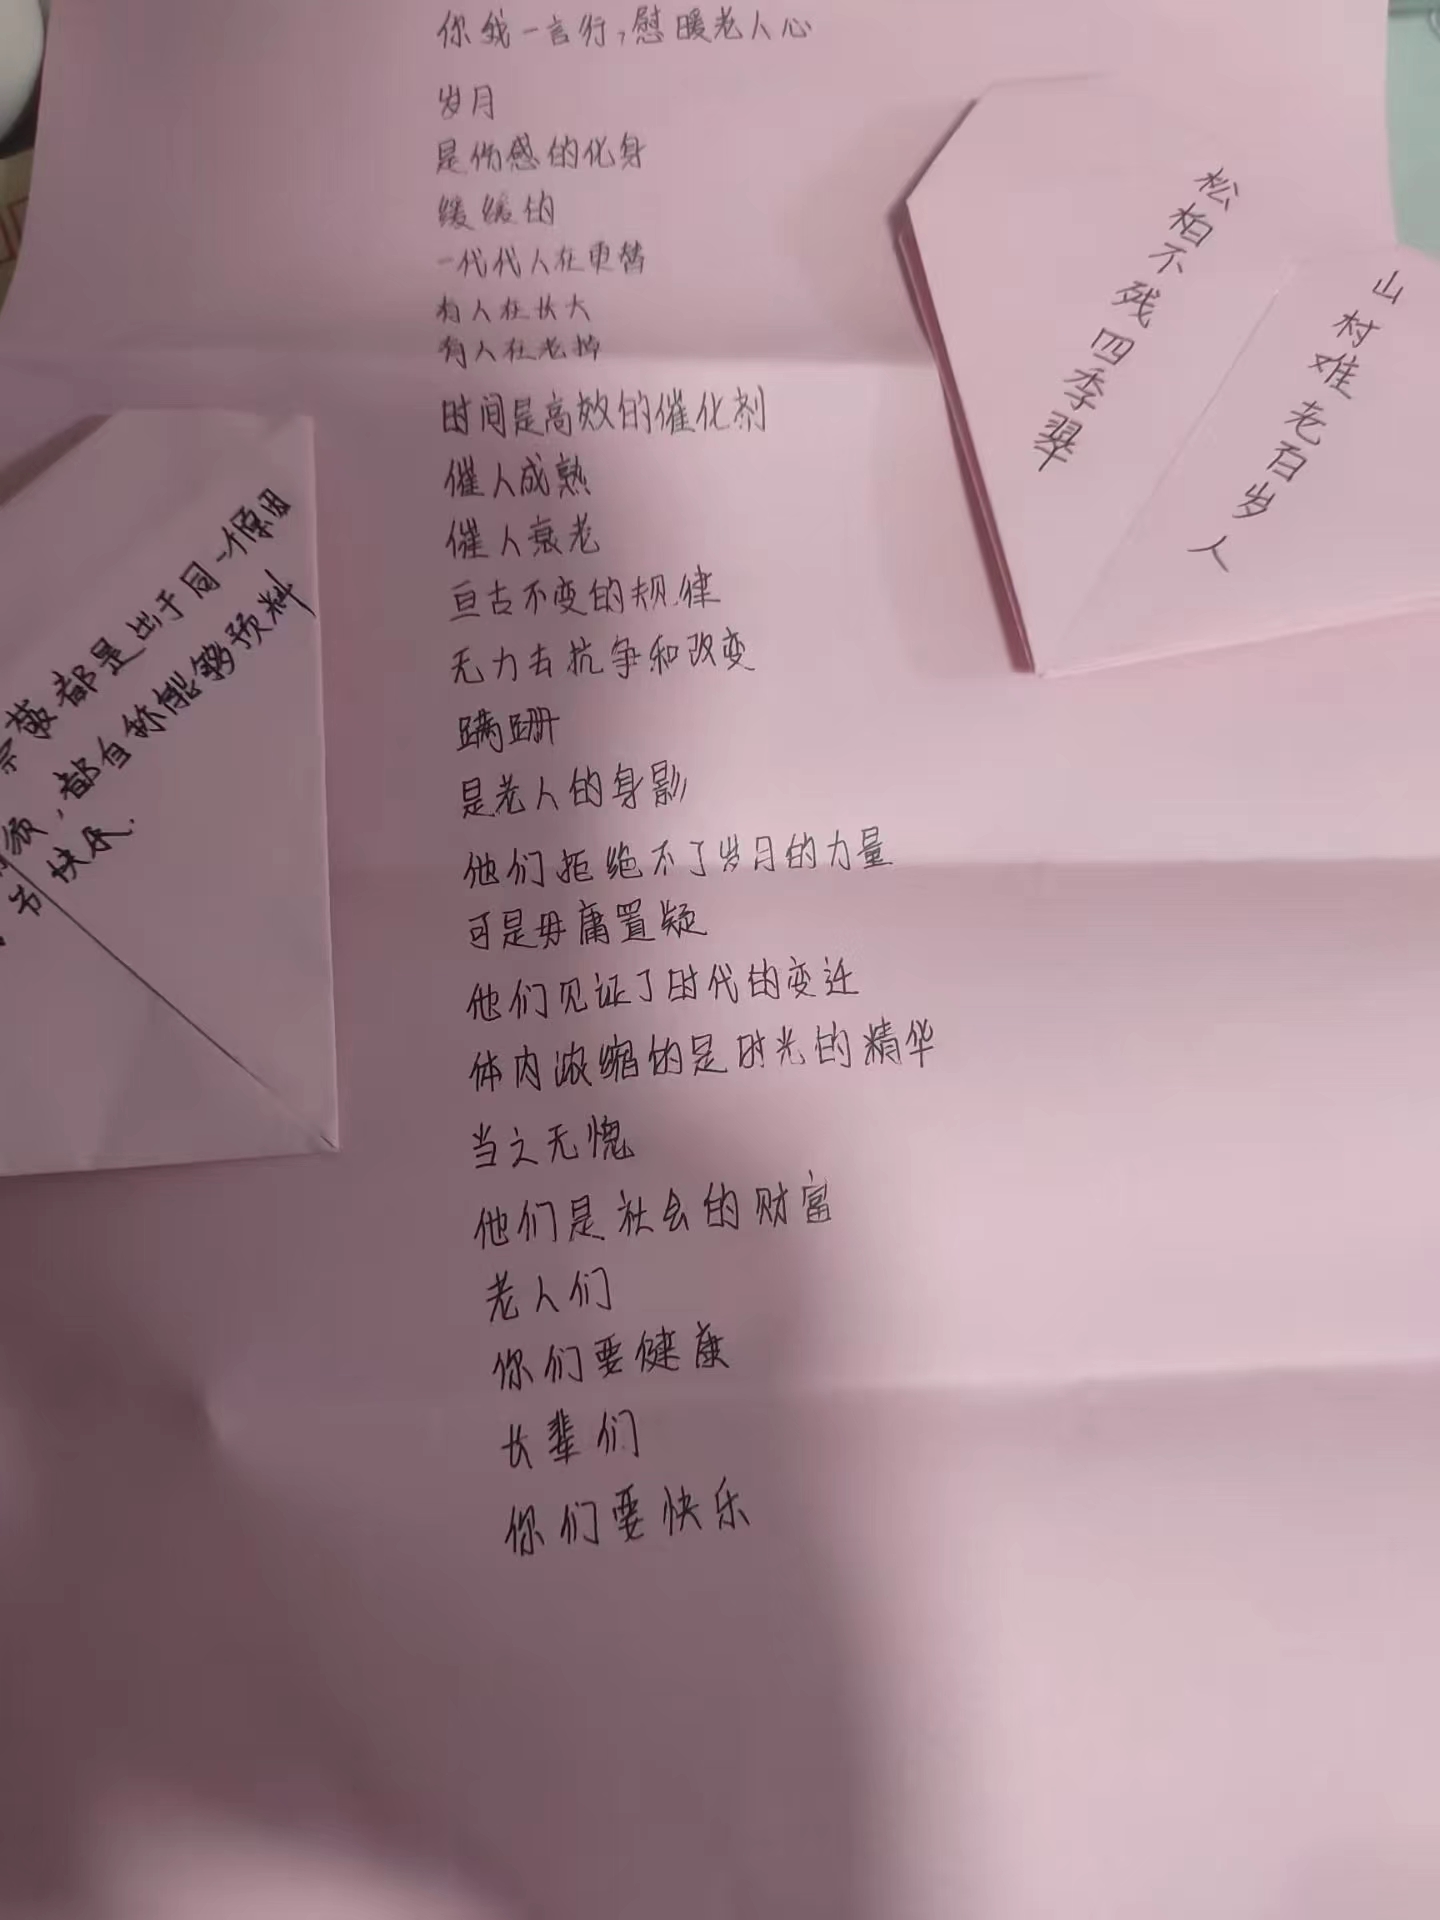 你我一言行，慰暖老人心
岁月
是伤感的化身
缓缓的
一代代人在更替
有人在长大
有人在老掉
时间是高效的催化剂
催人成熟
催人衰老
亘古不变的规律
无力去抗争和改变
蹒跚
是老人的身影
他们拒绝不了岁月的力量
可是毋庸置疑
他们见证了时代的变迁
体内浓缩的是时光的精华
当之无愧
他们是社会的财富
老人们
你们要健康
长辈们
你们要快乐
松柏不残四季翠
山村难老百岁人
都是出于同一个原因
须，都自称能够预料
节快乐.